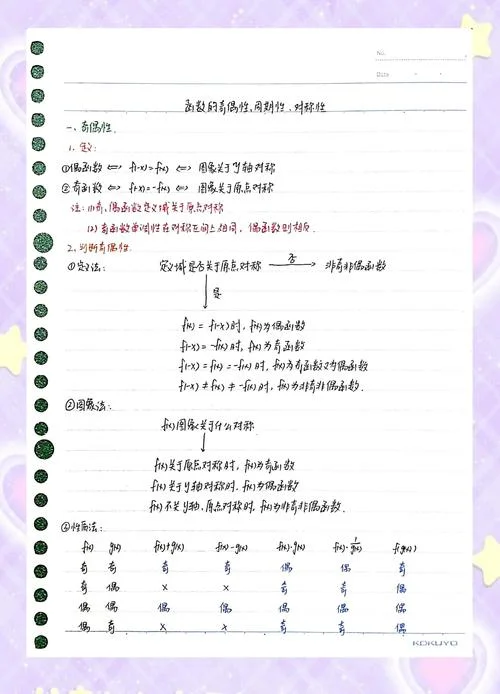 No.
Date
函数的奇偶性、周期性、对称性
一、奇偶性.
1. 定义:
①偶函数 <=> f(-x)=f(x) <=> 图像关于y轴对称
②奇函数 <=> f(-x)=-f(x) <=> 图像关于原点对称
注: (1)奇、偶函数定义域关于原点对称
(2) 奇函数单调性在对称区间上相同, 偶函数则相反.
2. 判断奇偶性.
①定义法: 定义域是否关于原点对称 否 → 非奇非偶函数
↓是
f(x) = f(-x)时, f(x)为偶函数
f(-x) = -f(x)时, f(x)为奇函数
f(-x) = f(x) = -f(x)时, f(x)为奇函数又为偶函数
f(-x) ≠ f(x) ≠ -f(x)时, f(x)为非奇非偶函数.
②图像法:
f(x)图像关于什么对称
↓
f(x)关于原点对称时, f(x)为奇函数
f(x)关于y轴对称时, f(x)为偶函数
f(x)不关y轴、原点对称时, f(x)为非奇非偶函数.
③性质法:
f(x) g(x) f(x)+g(x) f(x)-g(x) f(x)·g(x) f(x)·1/g(x) f(g(x))
奇 奇 奇 奇 偶 偶 奇
奇 偶 × × 奇 奇 偶
偶 偶 偶 偶 偶 偶 偶
偶 奇 × × 奇 奇 偶
KOKUYO